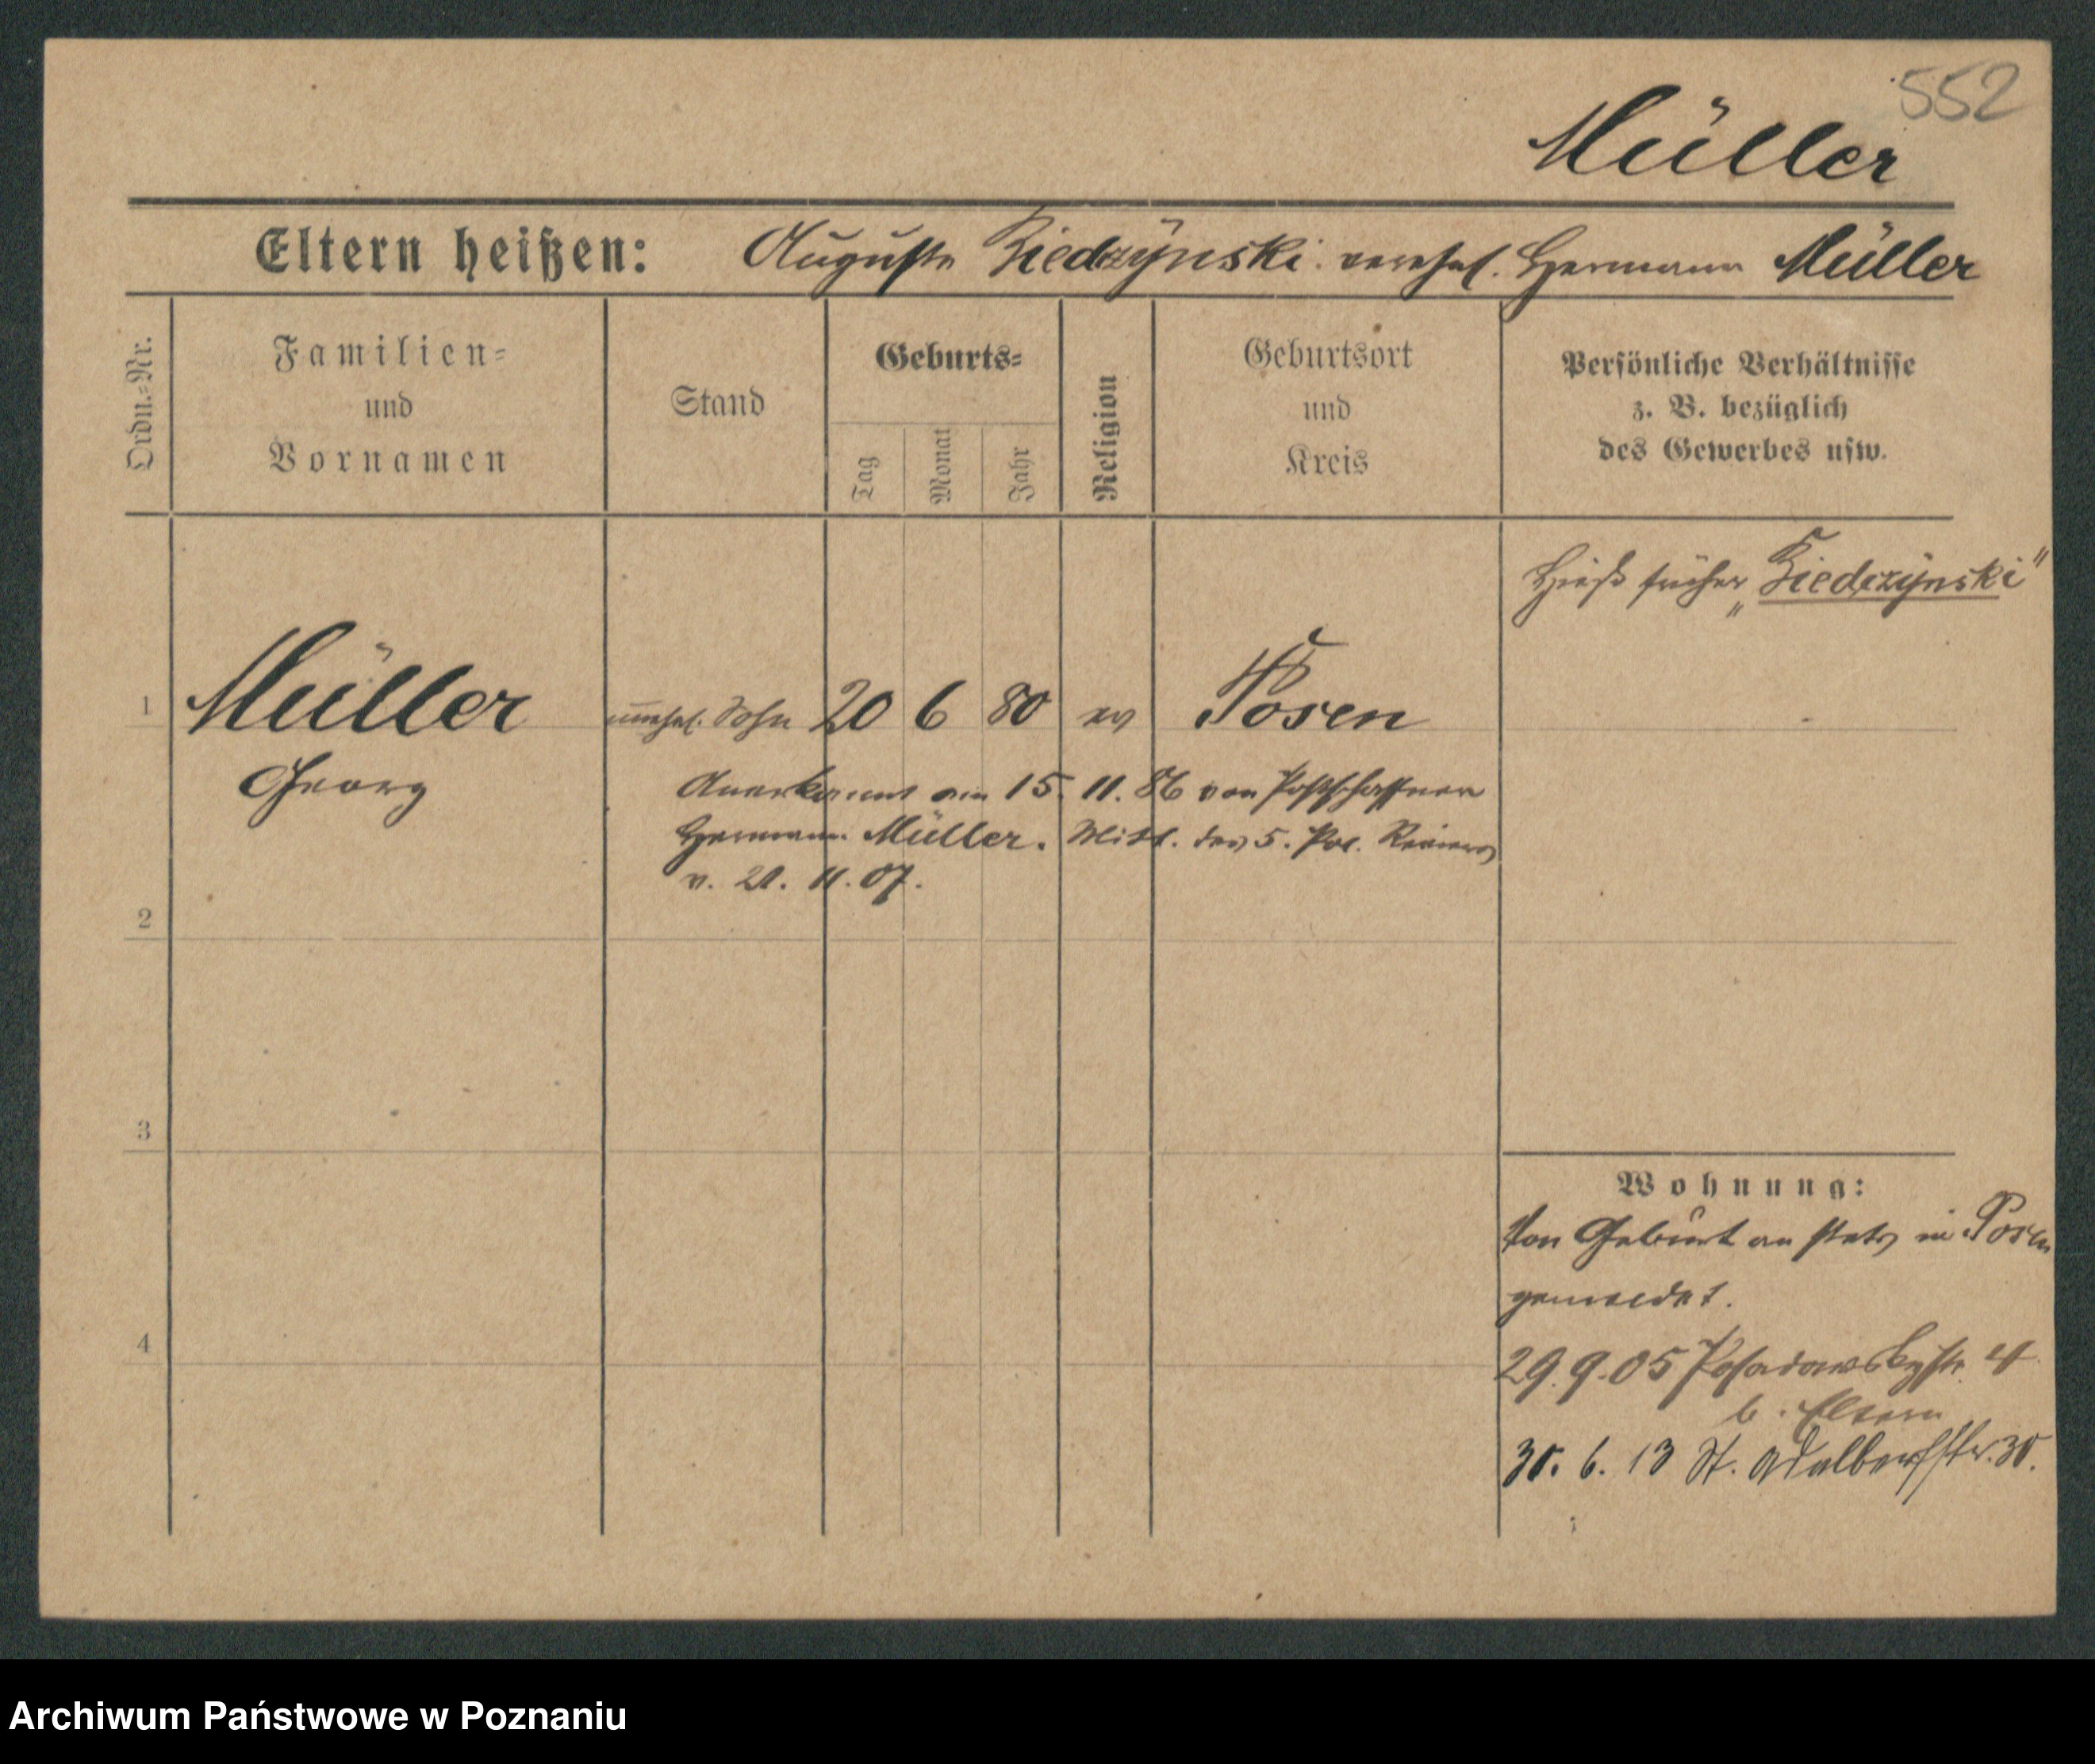 552
Müller
Eltern heißen: Auguste Ziedzÿnski verehel. Hermann Müller
Ordn.=Nr.
Familien=
und
Vornamen
Stand
Geburts=
Tag
Monat
Jahr
Religion
Geburtsort
und
Kreis
Persönliche Verhältnisse
z. B. bezüglich
des Gewerbes usw.
Hieß früher „Ziedzÿnski“
1 Müller unehel. Sohn 20 6 80 ev Posen
Georg
Anerkannt am 15. 11. 86 von Postschaffner
Hermann Müller. Mitt. des 5. Pol. Reviers
v. 21. 11. 07.
2
3
4
Wohnung:
Von Geburt an stets in Posen
gemeldet.
29. 9. 05 Posadowskystr. 4
b. Eltern
30. 6. 13 St. Adalbertstr. 30.
Archiwum Państwowe w Poznaniu